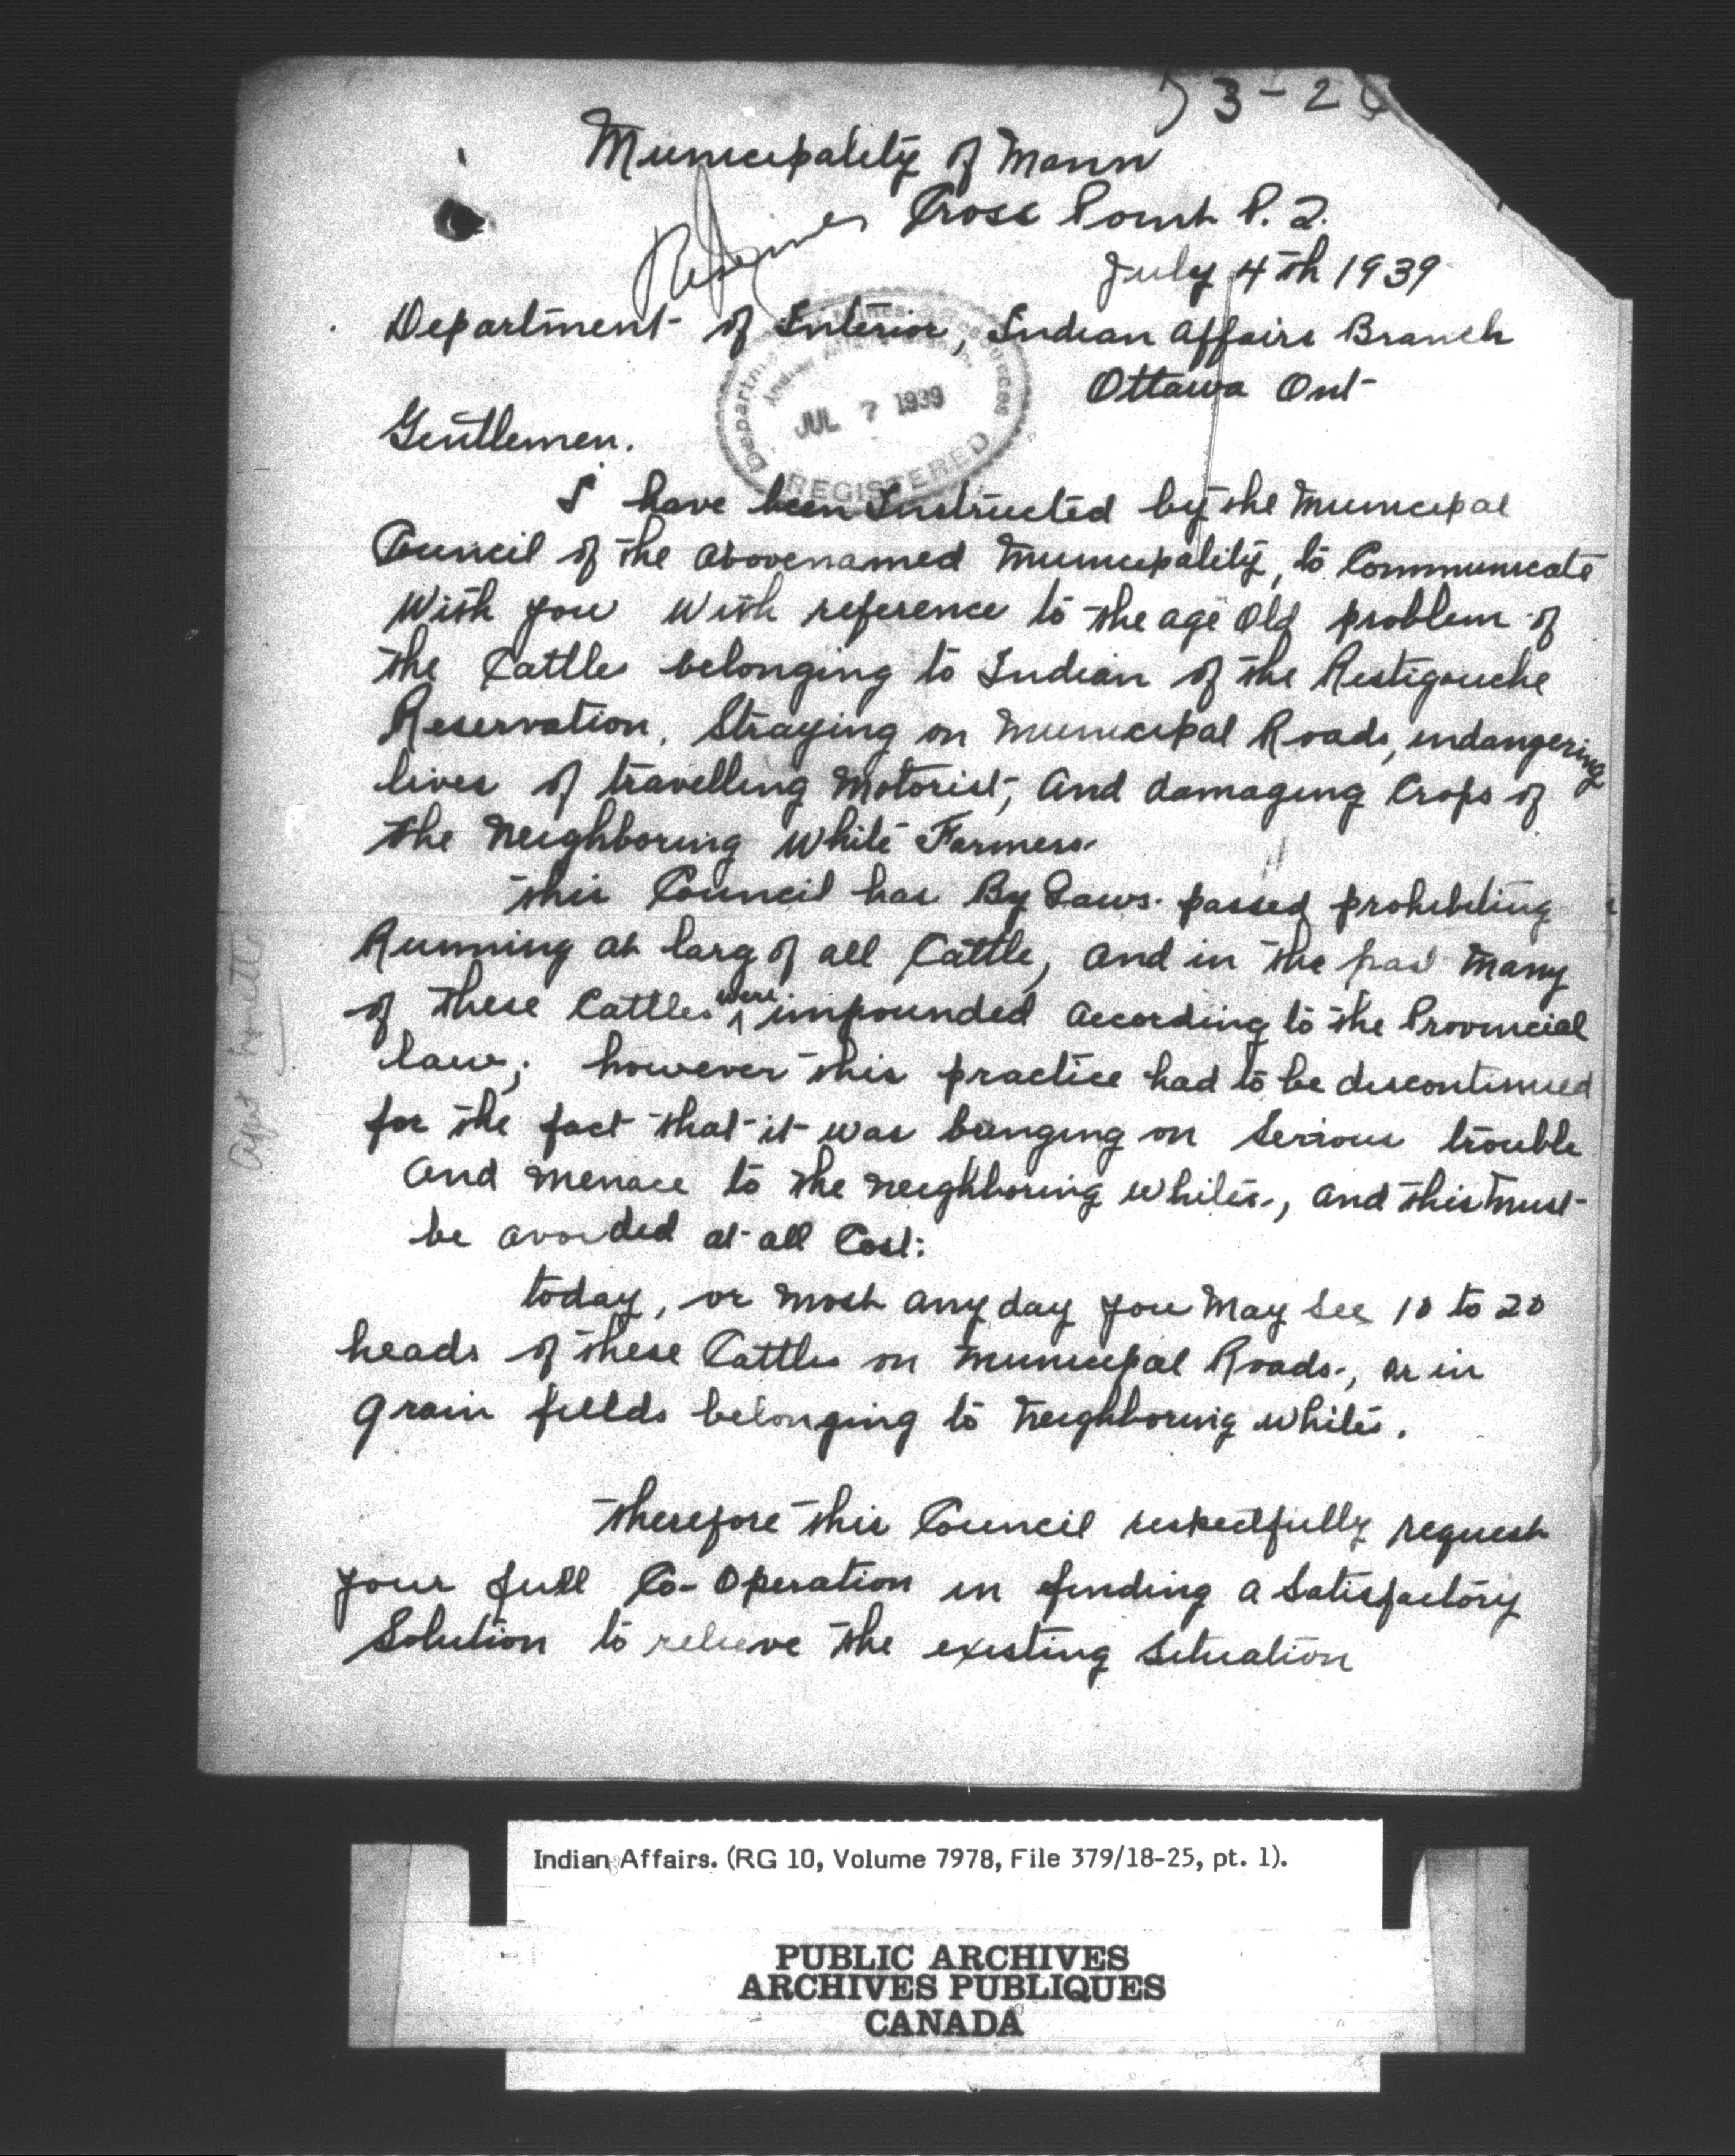 3-2
Municipality of Mann
Cross Point P. Q.
July 4th 1939
Department of Interior, Indian Affairs Branch
Ottawa Ont
JUL 7 1939
REGISTERED
Gentlemen.
I have been Instructed by the Municipal
Council of the abovenamed Municipality, to Communicate
With you With reference to the age Old problem of
the Cattles belonging to Indian of the Restigouche
Reservation, Straying on Municipal Roads, indangering
lives of travelling Motorist, and damaging Crops of
the Neighboring White Farmers.
This Council has By Laws. passed prohibiting
Running at larg of all Cattle, and in the pas Many
of these Cattles were impounded according to the Provincial
law; however this practice had to be discontinued
for the fact that it was bringing on Serious trouble
and menace to the neighboring whites, and this must
be avoided at all Cost:
today, or most any day you May See 10 to 20
heads of these Cattles on Municipal Roads, or in
grain fields belonging to Neighboring whites.
Therefore this Council respectfully request
your full Co-Operation in finding a Satisfactory
Solution to relieve the existing Situation
Indian Affairs. (RG 10, Volume 7978, File 379/18-25, pt. 1).
PUBLIC ARCHIVES
ARCHIVES PUBLIQUES
CANADA